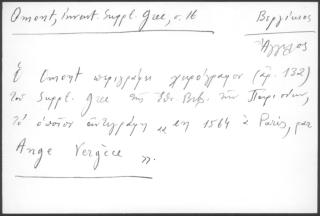 Omont, Invent. Suppl. Grec, σ. 16
Βεργίκιος
Ἄγγελος
Ὁ Omont περιγράφει χειρόγραφον (ἀρ. 132)
τοῦ Suppl. Grec τῆς Ἐθν. Βιβ. τῶν Παρισίων,
τὸ ὁποῖον ἀντεγράφη « en 1564 à Paris, par
Ange Vergèce ».